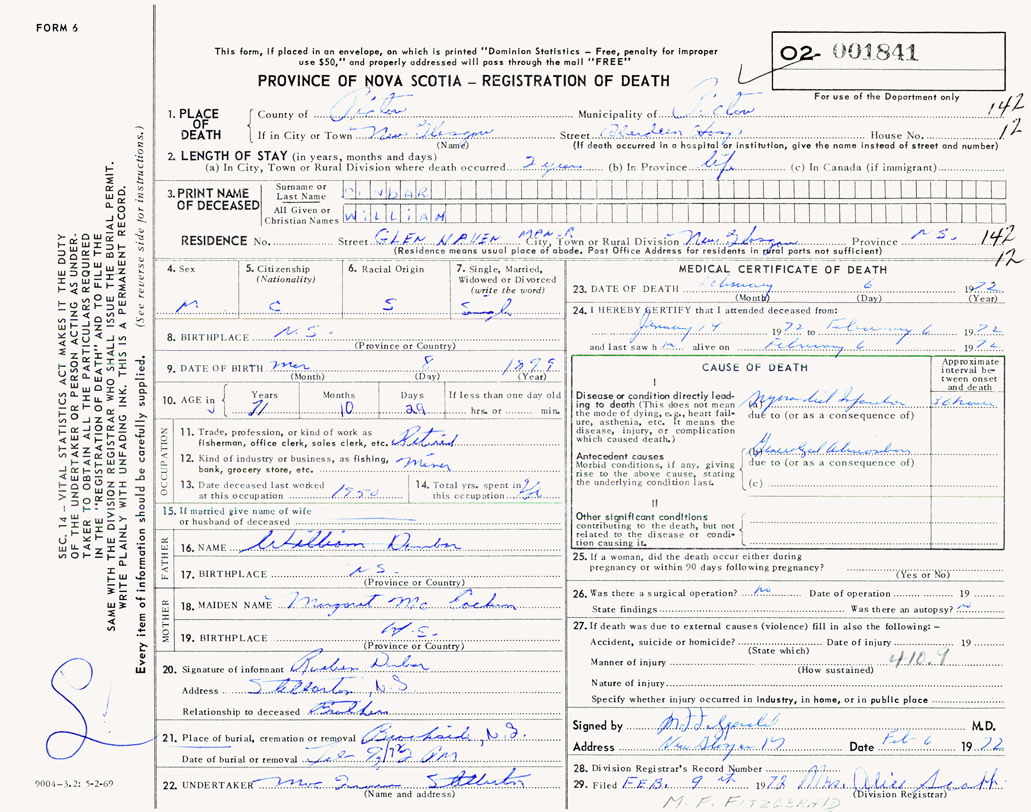 FORM 6
This form, if placed in an envelope, on which is printed "Dominion Statistics – Free, penalty for improper
use $50," and properly addressed will pass through the mail "FREE"
PROVINCE OF NOVA SCOTIA – REGISTRATION OF DEATH
02 001841
For use of the Department only
1. PLACE OF DEATH
County of Pictou Municipality of Pictou 142
If in City or Town New Glasgow Street Aberdeen Hosp. House No. 12
(Name) (If death occurred in a hospital or institution, give the name instead of street and number)
2. LENGTH OF STAY (in years, months and days)
(a) In City, Town or Rural Division where death occurred 2 years (b) In Province life (c) In Canada (if immigrant)
3. PRINT NAME OF DECEASED
Surname or Last Name DUNBAR
All Given or Christian Names WILLIAM
RESIDENCE No. Street GLEN HAVEN City, Town or Rural Division New Glasgow Province N.S. 142
(Residence means usual place of abode. Post Office Address for residents in rural parts not sufficient) 12
4. Sex M
5. Citizenship (Nationality) C
6. Racial Origin S
7. Single, Married, Widowed or Divorced (write the word) Single
8. BIRTHPLACE N.S.
(Province or Country)
9. DATE OF BIRTH Mar 8 1899
(Month) (Day) (Year)
10. AGE in Years 71 Months 10 Days 29 If less than one day old hrs. or min.
OCCUPATION
11. Trade, profession, or kind of work as
fisherman, office clerk, sales clerk, etc. Retired
12. Kind of industry or business, as fishing,
bank, grocery store, etc. Miner
13. Date deceased last worked
at this occupation 1950
14. Total yrs. spent in
this occupation
15. If married give name of wife
or husband of deceased
FATHER
16. NAME William Dunbar
17. BIRTHPLACE N.S.
(Province or Country)
MOTHER
18. MAIDEN NAME Margaret Mc
19. BIRTHPLACE N.S.
(Province or Country)
20. Signature of informant Reuben Dunbar
Address Stellarton, N.S
Relationship to deceased Brother
21. Place of burial, cremation or removal Brookside, N.S.
Date of burial or removal Feb 9/72 2 PM
22. UNDERTAKER Stellarton
(Name and address)
MEDICAL CERTIFICATE OF DEATH
23. DATE OF DEATH February 6 1972
(Month) (Day) (Year)
24. I HEREBY CERTIFY that I attended deceased from:
January 14 1972 to February 6 1972
and last saw him alive on February 6 1972
CAUSE OF DEATH
Approximate interval between onset and death
I
Disease or condition directly lead-
ing to death (This does not mean
the mode of dying, e.g., heart fail-
ure, asthenia, etc. It means the
disease, injury, or complication
which caused death.)
(a) Myocardial Infarction
due to (or as a consequence of)
Antecedent causes
Morbid conditions, if any, giving
rise to the above cause, stating
the underlying condition last.
(b)
due to (or as a consequence of)
(c)
II
Other significant conditions
contributing to the death, but not
related to the disease or condi-
tion causing it.
25. If a woman, did the death occur either during
pregnancy or within 90 days following pregnancy?
(Yes or No)
26. Was there a surgical operation? no Date of operation 19
State findings Was there an autopsy? no
27. If death was due to external causes (violence) fill in also the following: –
Accident, suicide or homicide? Date of injury 19
(State which)
Manner of injury 410.9
(How sustained)
Nature of injury
Specify whether injury occurred in industry, in home, or in public place
Signed by M F Fitzgerald M.D.
Address New Glasgow NS Date Feb 6 1972
28. Division Registrar's Record Number
29. Filed FEB. 9th 1972 Mrs. Alice Scott
(Division Registrar)
M. F. FITZGERALD
SEC. 14 – VITAL STATISTICS ACT MAKES IT THE DUTY
OF THE UNDERTAKER OR PERSON ACTING AS UNDER-
TAKER TO OBTAIN ALL THE PARTICULARS REQUIRED
IN THE "REGISTRATION OF DEATH" AND TO FILE THE
SAME WITH THE DIVISION REGISTRAR WHO SHALL ISSUE THE BURIAL PERMIT.
WRITE PLAINLY WITH UNFADING INK. THIS IS A PERMANENT RECORD.
Every item of information should be carefully supplied. (See reverse side for instructions.)
9004–3.2: 5-2-69